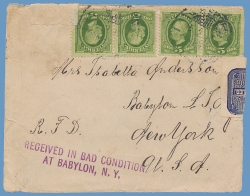 Mrs Isabella Anderson
Babylon L. I.
R. F. D.
New York
U. S. A
RECEIVED IN BAD CONDITION
AT BABYLON, N. Y.